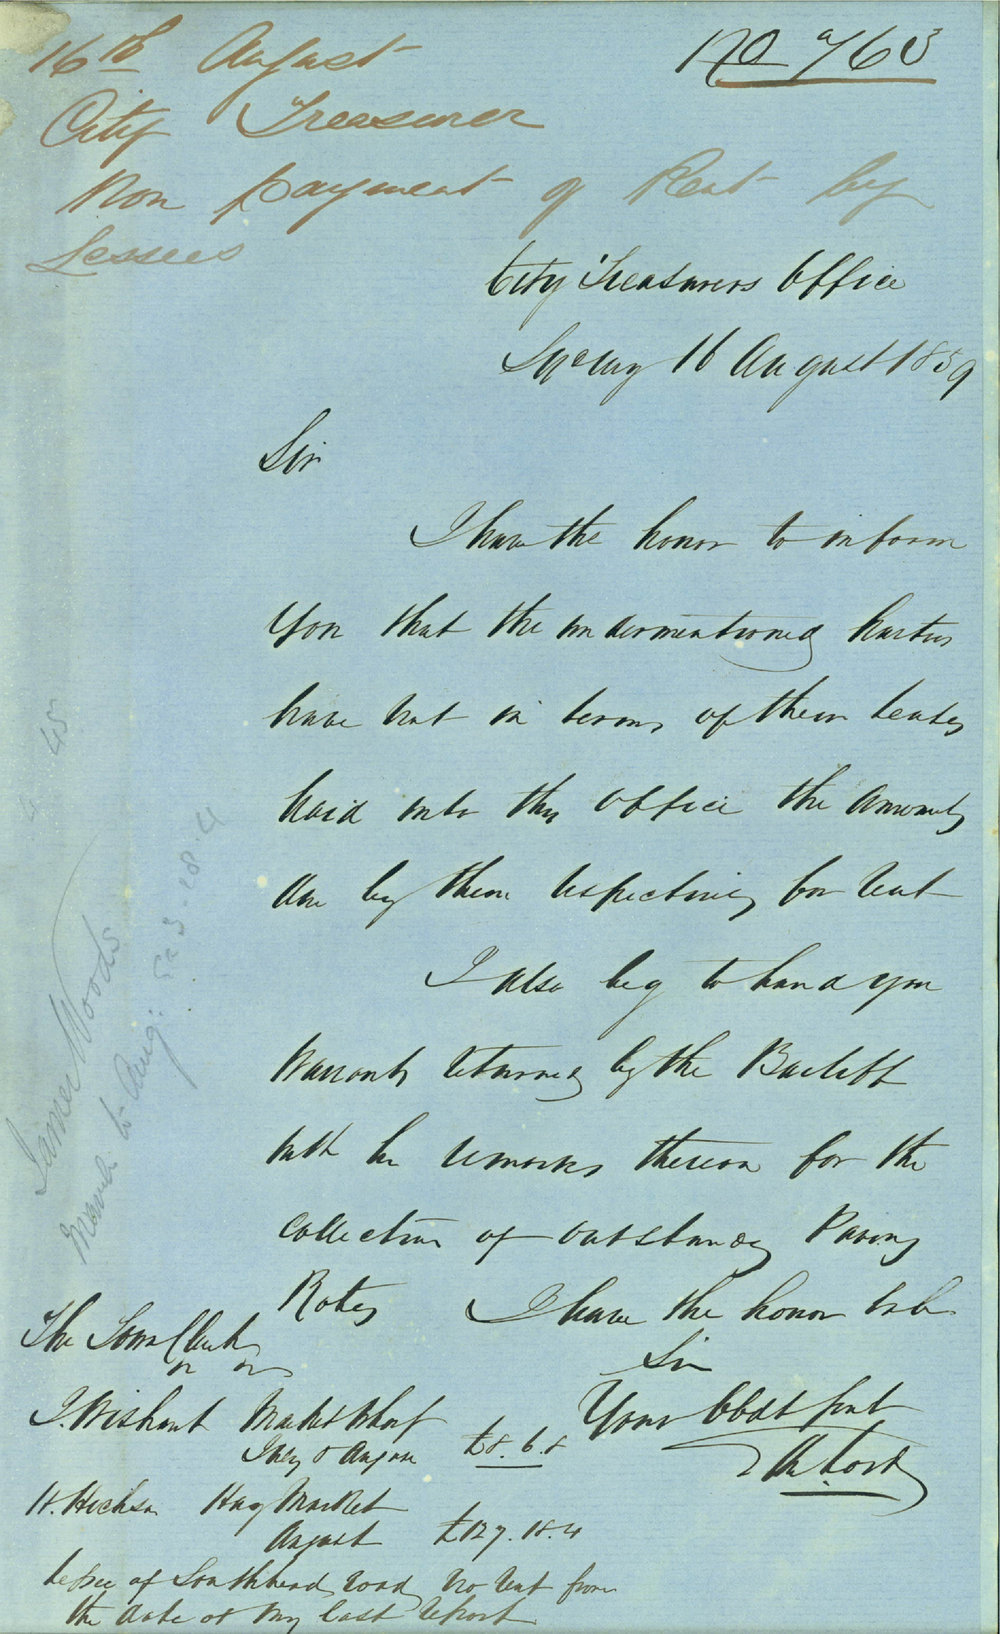 16th August
No 763
City Treasurer
Non payment of Rent by
Lessees
City Treasurers Office
Sydney 16 August 1859
Sir
I have the honor to inform
you that the undermentioned parties
have not in terms of their leases
paid into this office the amounts
due by them respectively for rent
I also beg to hand you
Warrants returned by the Bailiff
with his remarks thereon for the
collection of outstanding Paving
Rates I have the honor to be
Sir
Your Obdt Servt
The Town Clerk
J. Wishart Market Wharf
July & August £8.6.8
H. Hickson Hay Market
August £127.18.4
Lessee of Southhead road no rent from
the date of my last report
James Woods
March to Aug: